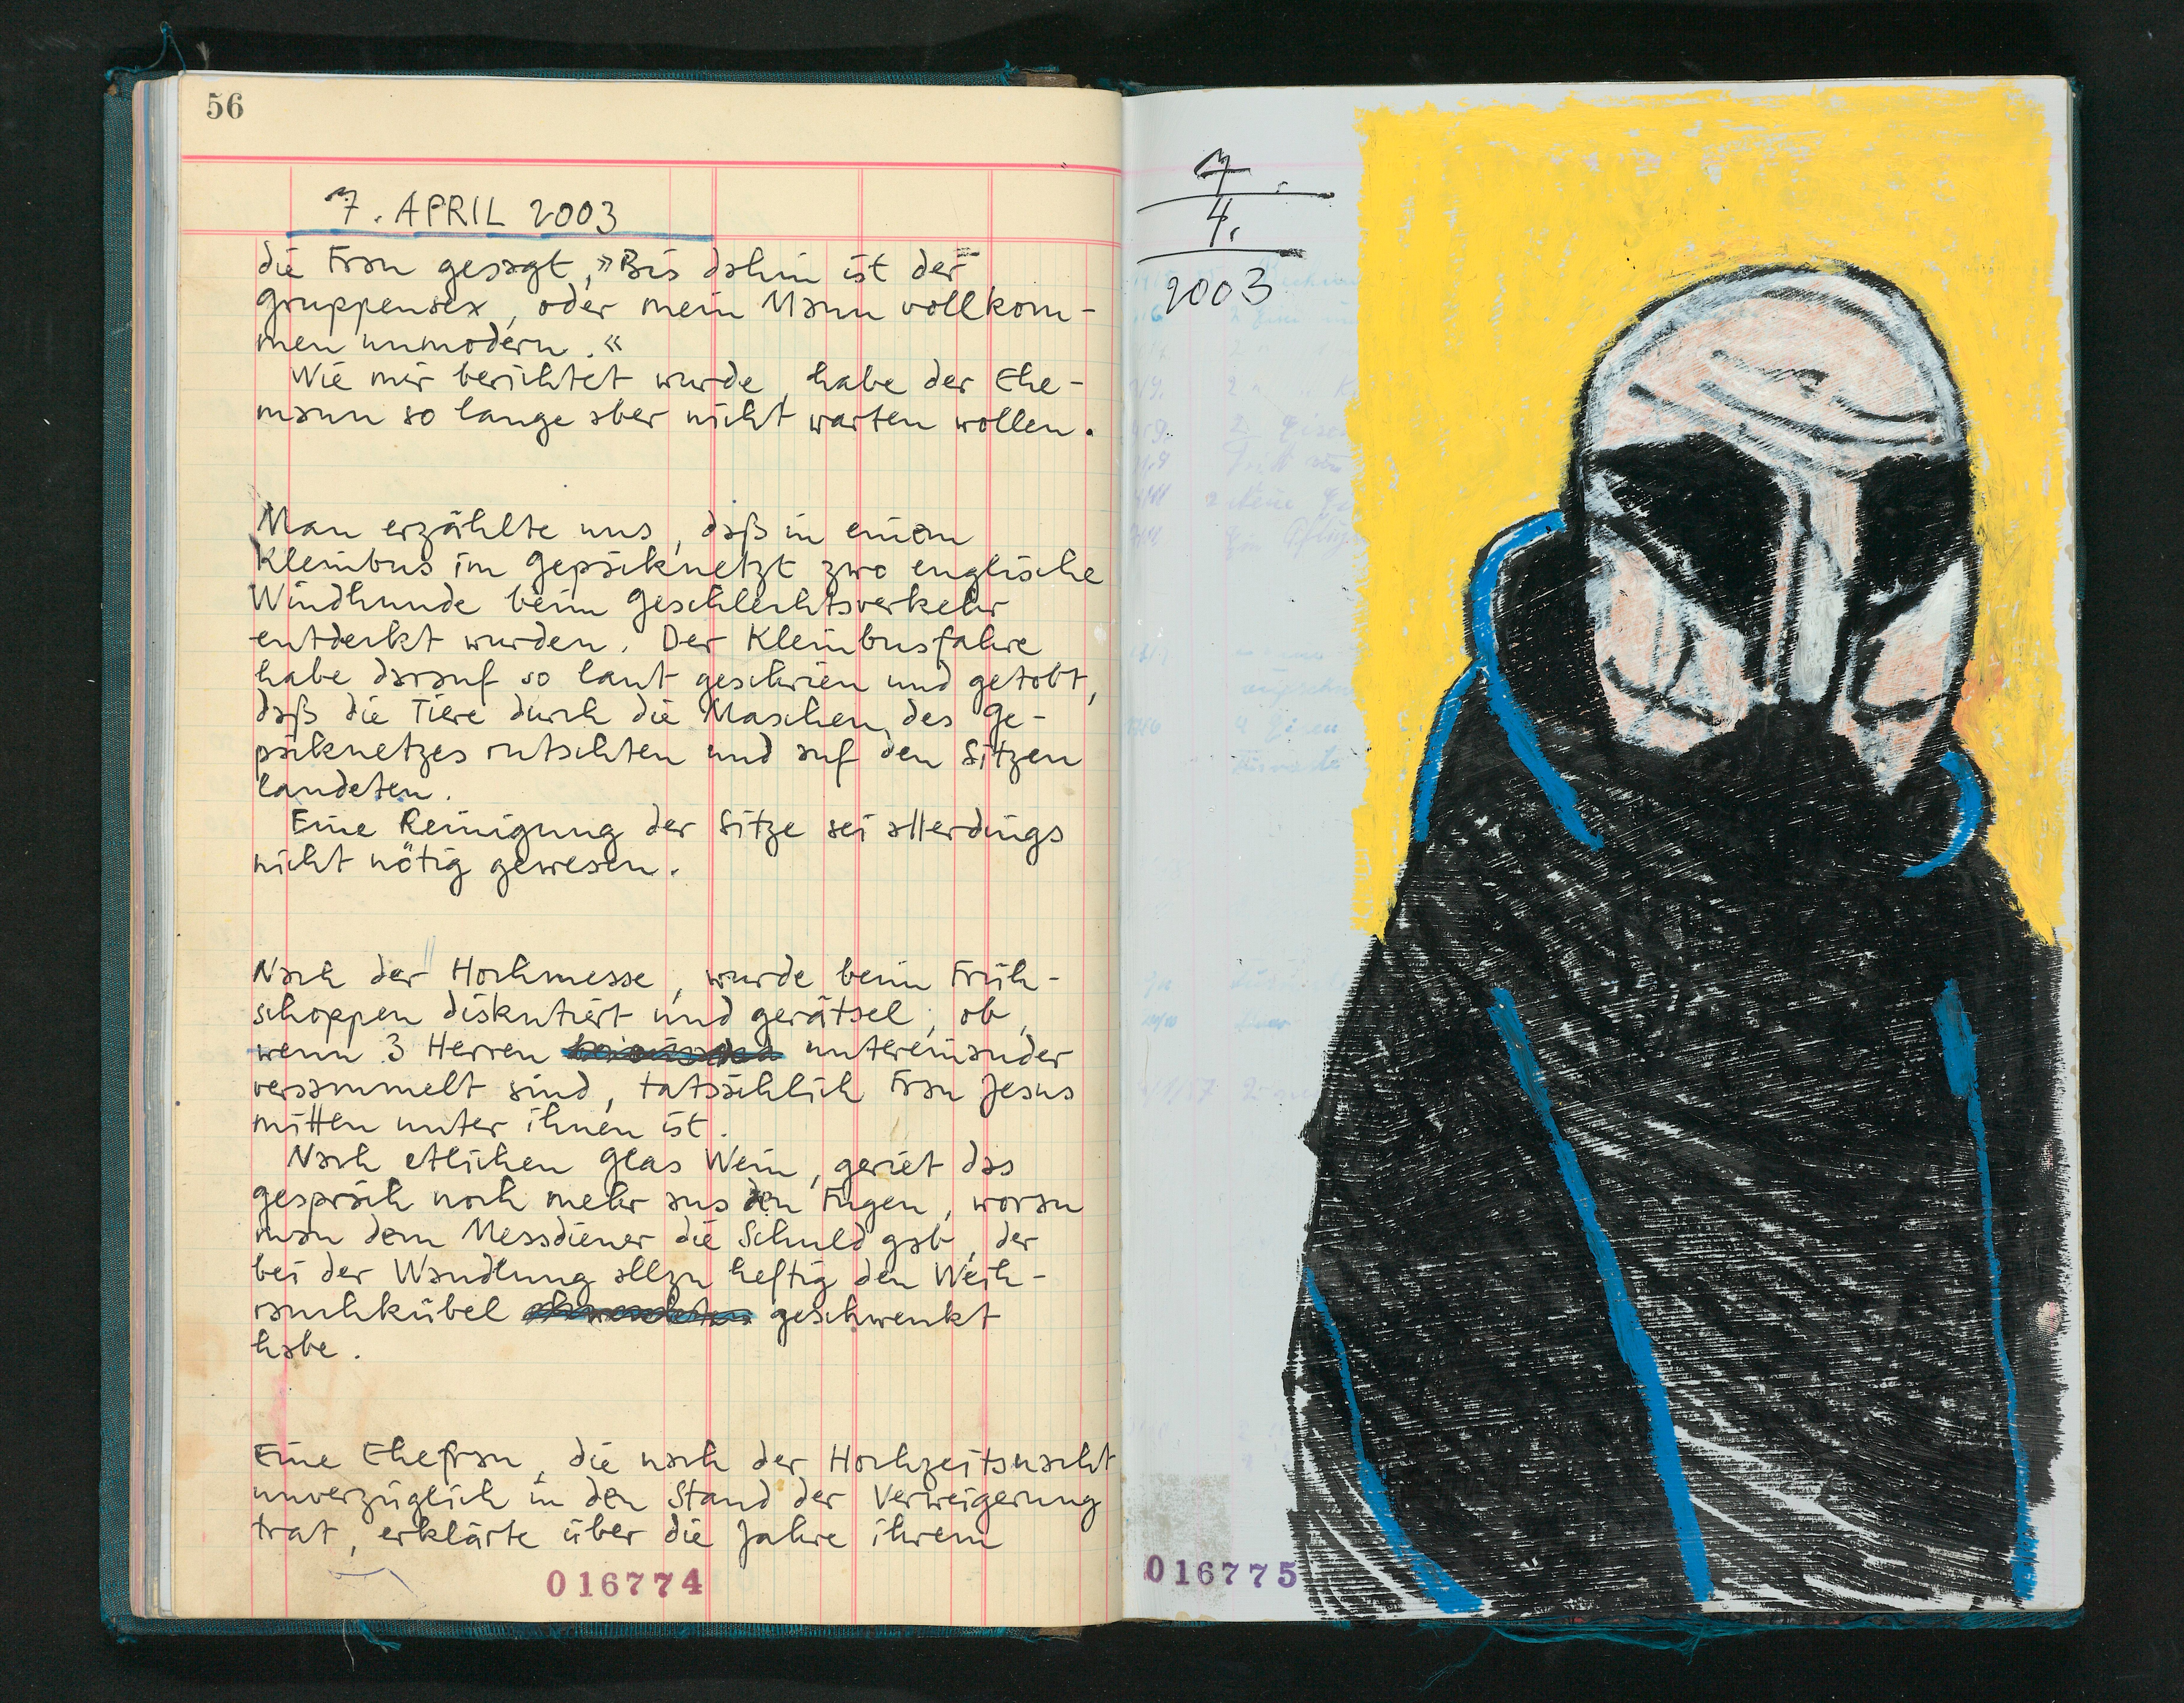 56
7. APRIL 2003
die Frau gesagt, »Bis dahin ist der
Gruppensex, oder mein Mann vollkom-
men unmodern.«
Wie mir berichtet wurde, habe der Ehe-
mann so lange aber nicht warten wollen.
Man erzählte uns, daß in einem
Kleinbus im Gepäcknetzt zwo englische
Windhunde beim Geschlechtsverkehr
entdeckt wurden. Der Kleinbusfahre
habe darauf so laut geschrien und getobt,
daß die Tiere durch die Maschen des Ge-
päcknetzes rutschten und auf den Sitzen
landeten.
Eine Reinigung der Sitze sei allerdings
nicht nötig gewesen.
Nach der Hochmesse, wurde beim Früh-
schoppen diskutiert und gerätsel, ob,
wenn 3 Herren untereinander
versammelt sind, tatsächlich Frau Jesus
mitten unter ihnen ist.
Nach etlichen Glas Wein, geriet das
Gespräch noch mehr aus den Fugen, woran
man dem Messdiener die Schuld gab, der
bei der Wandlung allzu heftig den Weih-
rauchkübel geschwenkt
habe.
Eine Ehefrau, die nach der Hochzeitsnacht
unverzüglich in den Stand der Verweigerung
trat, erklärte über die Jahre ihrem
016774
7.
4.
2003
016775